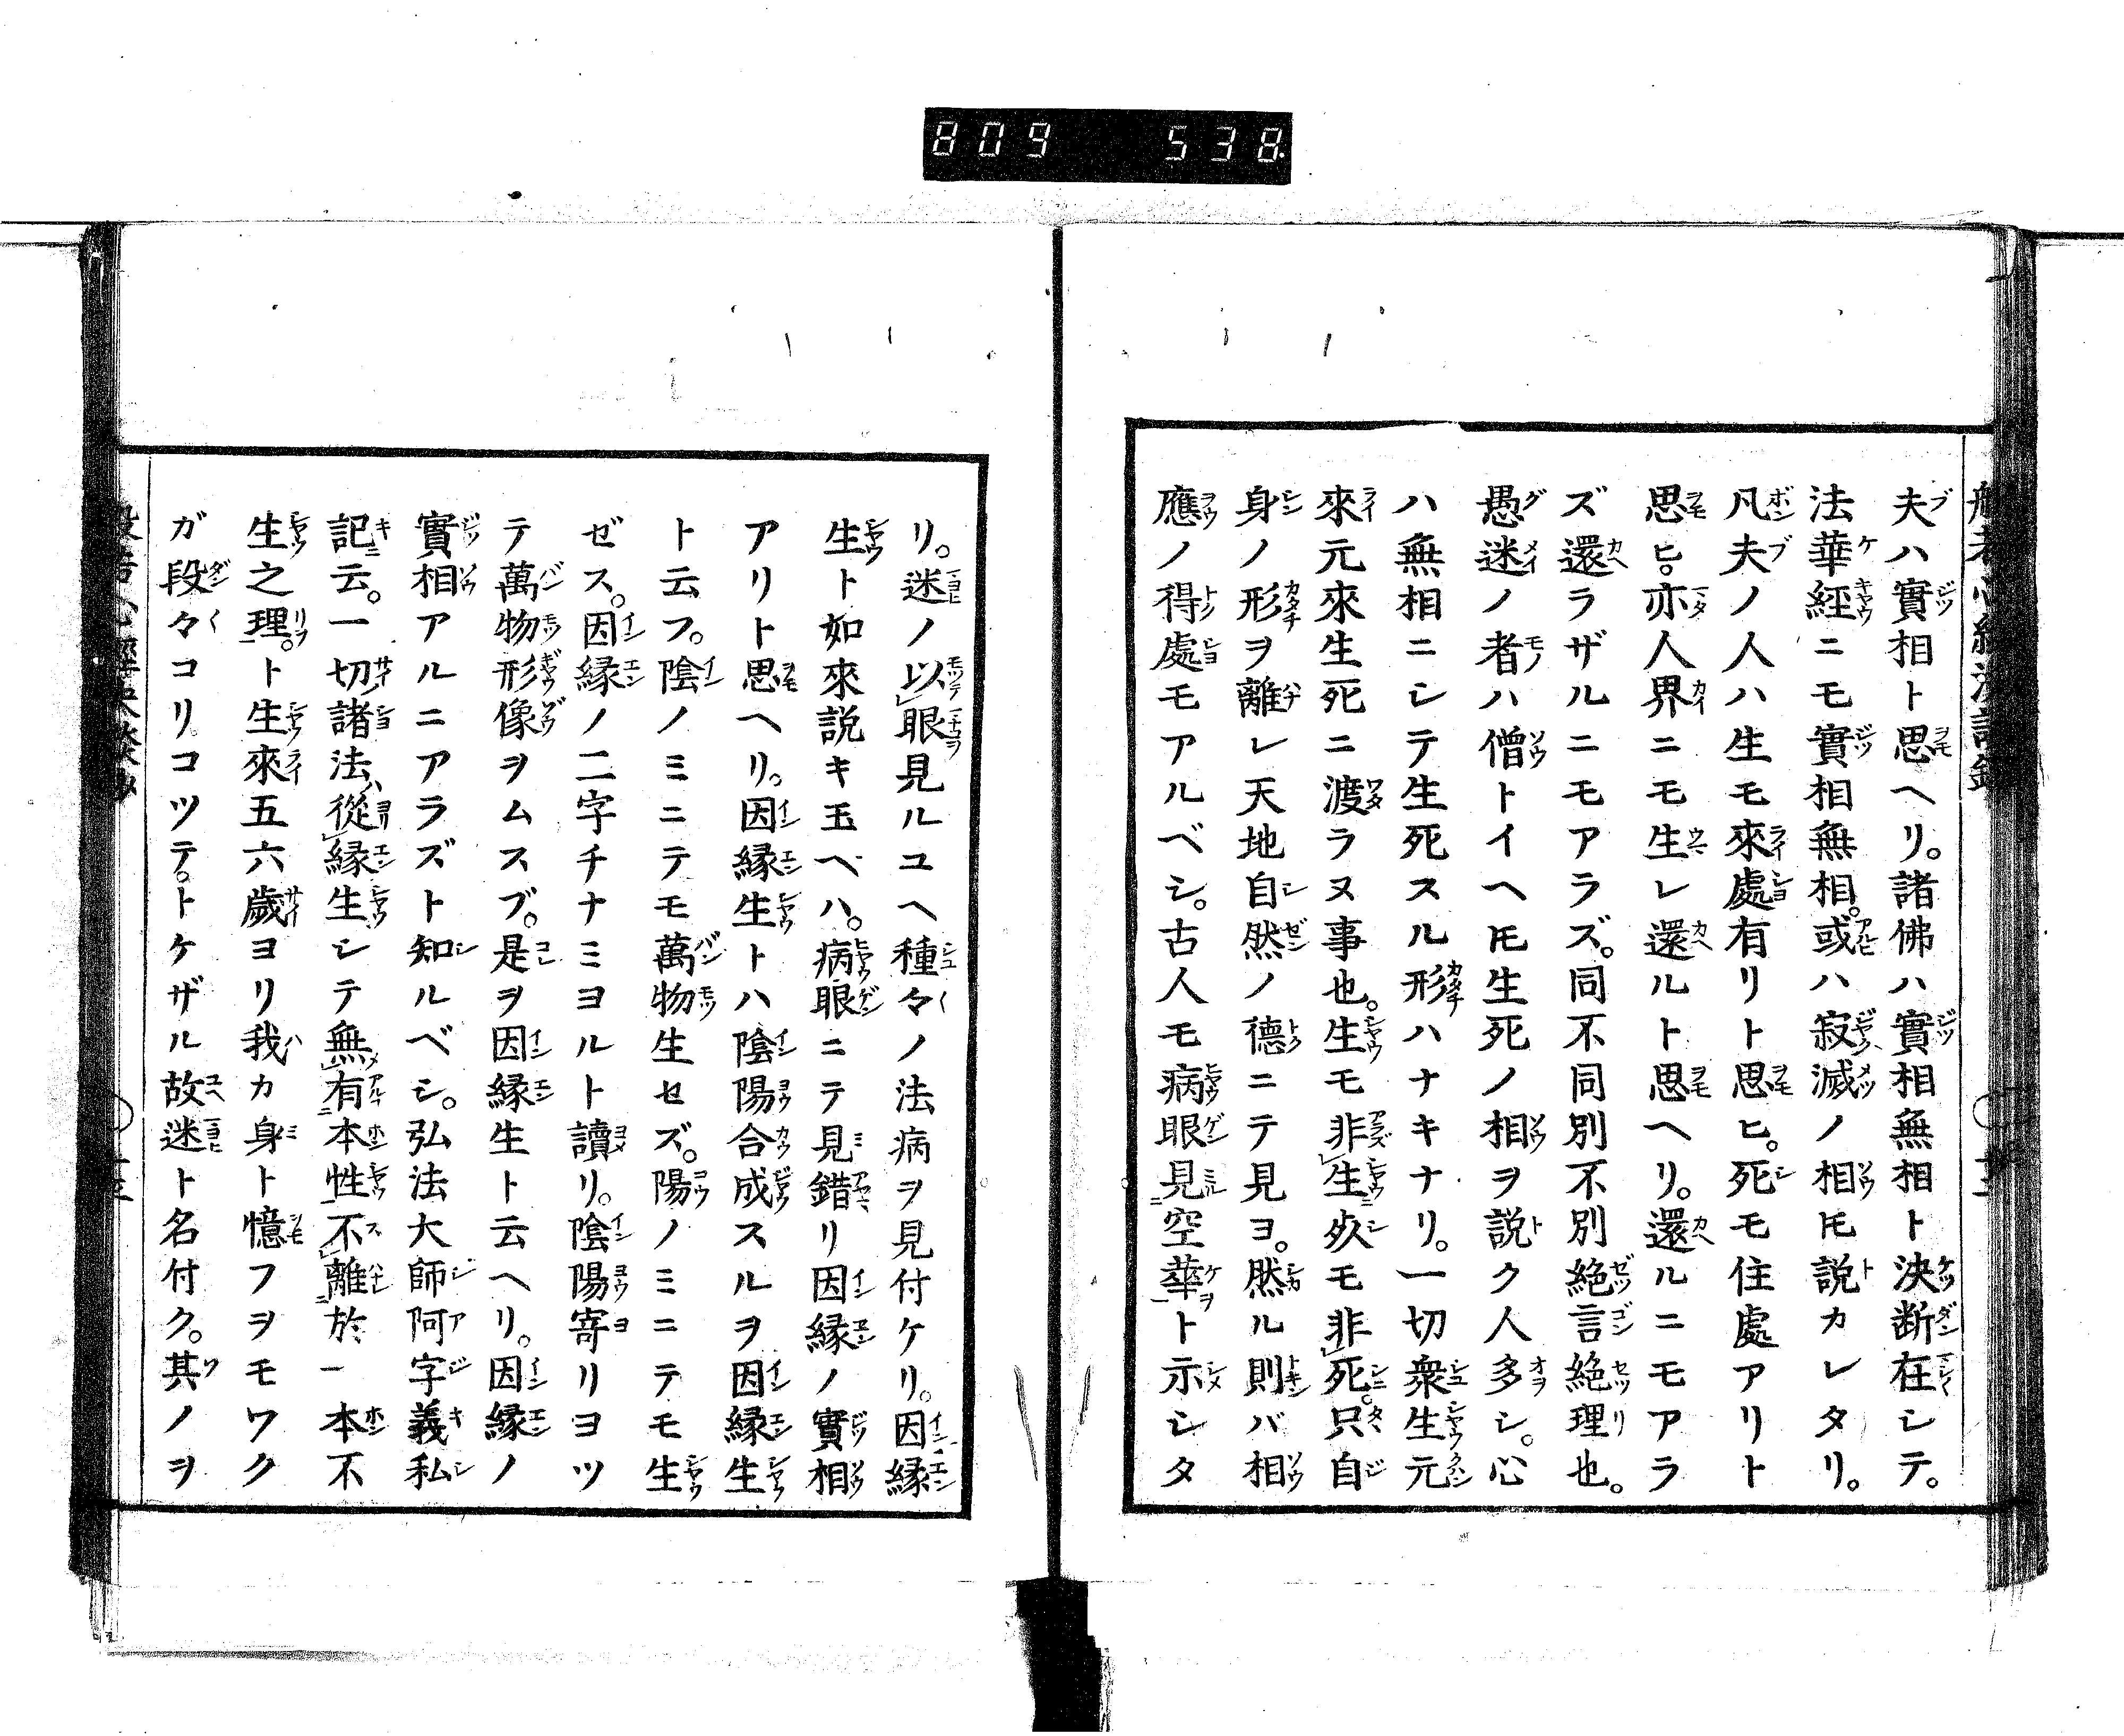 809 538
夫ハ實相ト思ヘリ。諸佛ハ實相無相ト決断在シテ。
法華經ニモ實相無相。或ハ寂滅ノ相𪜈説カレタリ。
凡夫ノ人ハ生モ來處有リト思ヒ。死モ住處アリト
思ヒ。亦人界ニモ生レ還ルト思ヘリ。還ルニモアラ
ズ還ラザルニモアラズ。同不同別不別絶言絶理也。
愚迷ノ者ハ僧トイヘ𪜈生死ノ相ヲ説ク人多シ。心
ハ無相ニシテ生死スル形ハナキナリ。一切衆生元
來元來生死ニ渡ラヌ事也。生モ非生死モ非死。只自
身ノ形ヲ離レ天地自然ノ德ニテ見ヨ。然ル則バ相
應ノ得處モアルベシ。古人モ病眼見空華ト示シタ
リ。迷ノ以眼見ルユヘ種々ノ法病ヲ見付ケリ。因縁
生ト如來説キ玉ヘハ。病眼ニテ見錯リ因縁ノ實相
アリト思ヘリ。因縁生トハ陰陽合成スルヲ因縁生
ト云フ。陰ノミニテモ萬物生セズ。陽ノミニテモ生
ゼス。因縁ノ二字チナミヨルト讀リ。陰陽寄リヨツ
テ萬物形像ヲムスブ。是ヲ因縁生ト云ヘリ。因縁ノ
實相アルニアラズト知ルベシ。弘法大師阿字義私
記云。一切諸法、從縁生シテ無有本性不離於一本不
生之理。ト生來五六歲ヨリ我カ身ト憶フヲモワク
ガ段々コリコツテ。トケザル故迷ト名付ク。其ノヲ